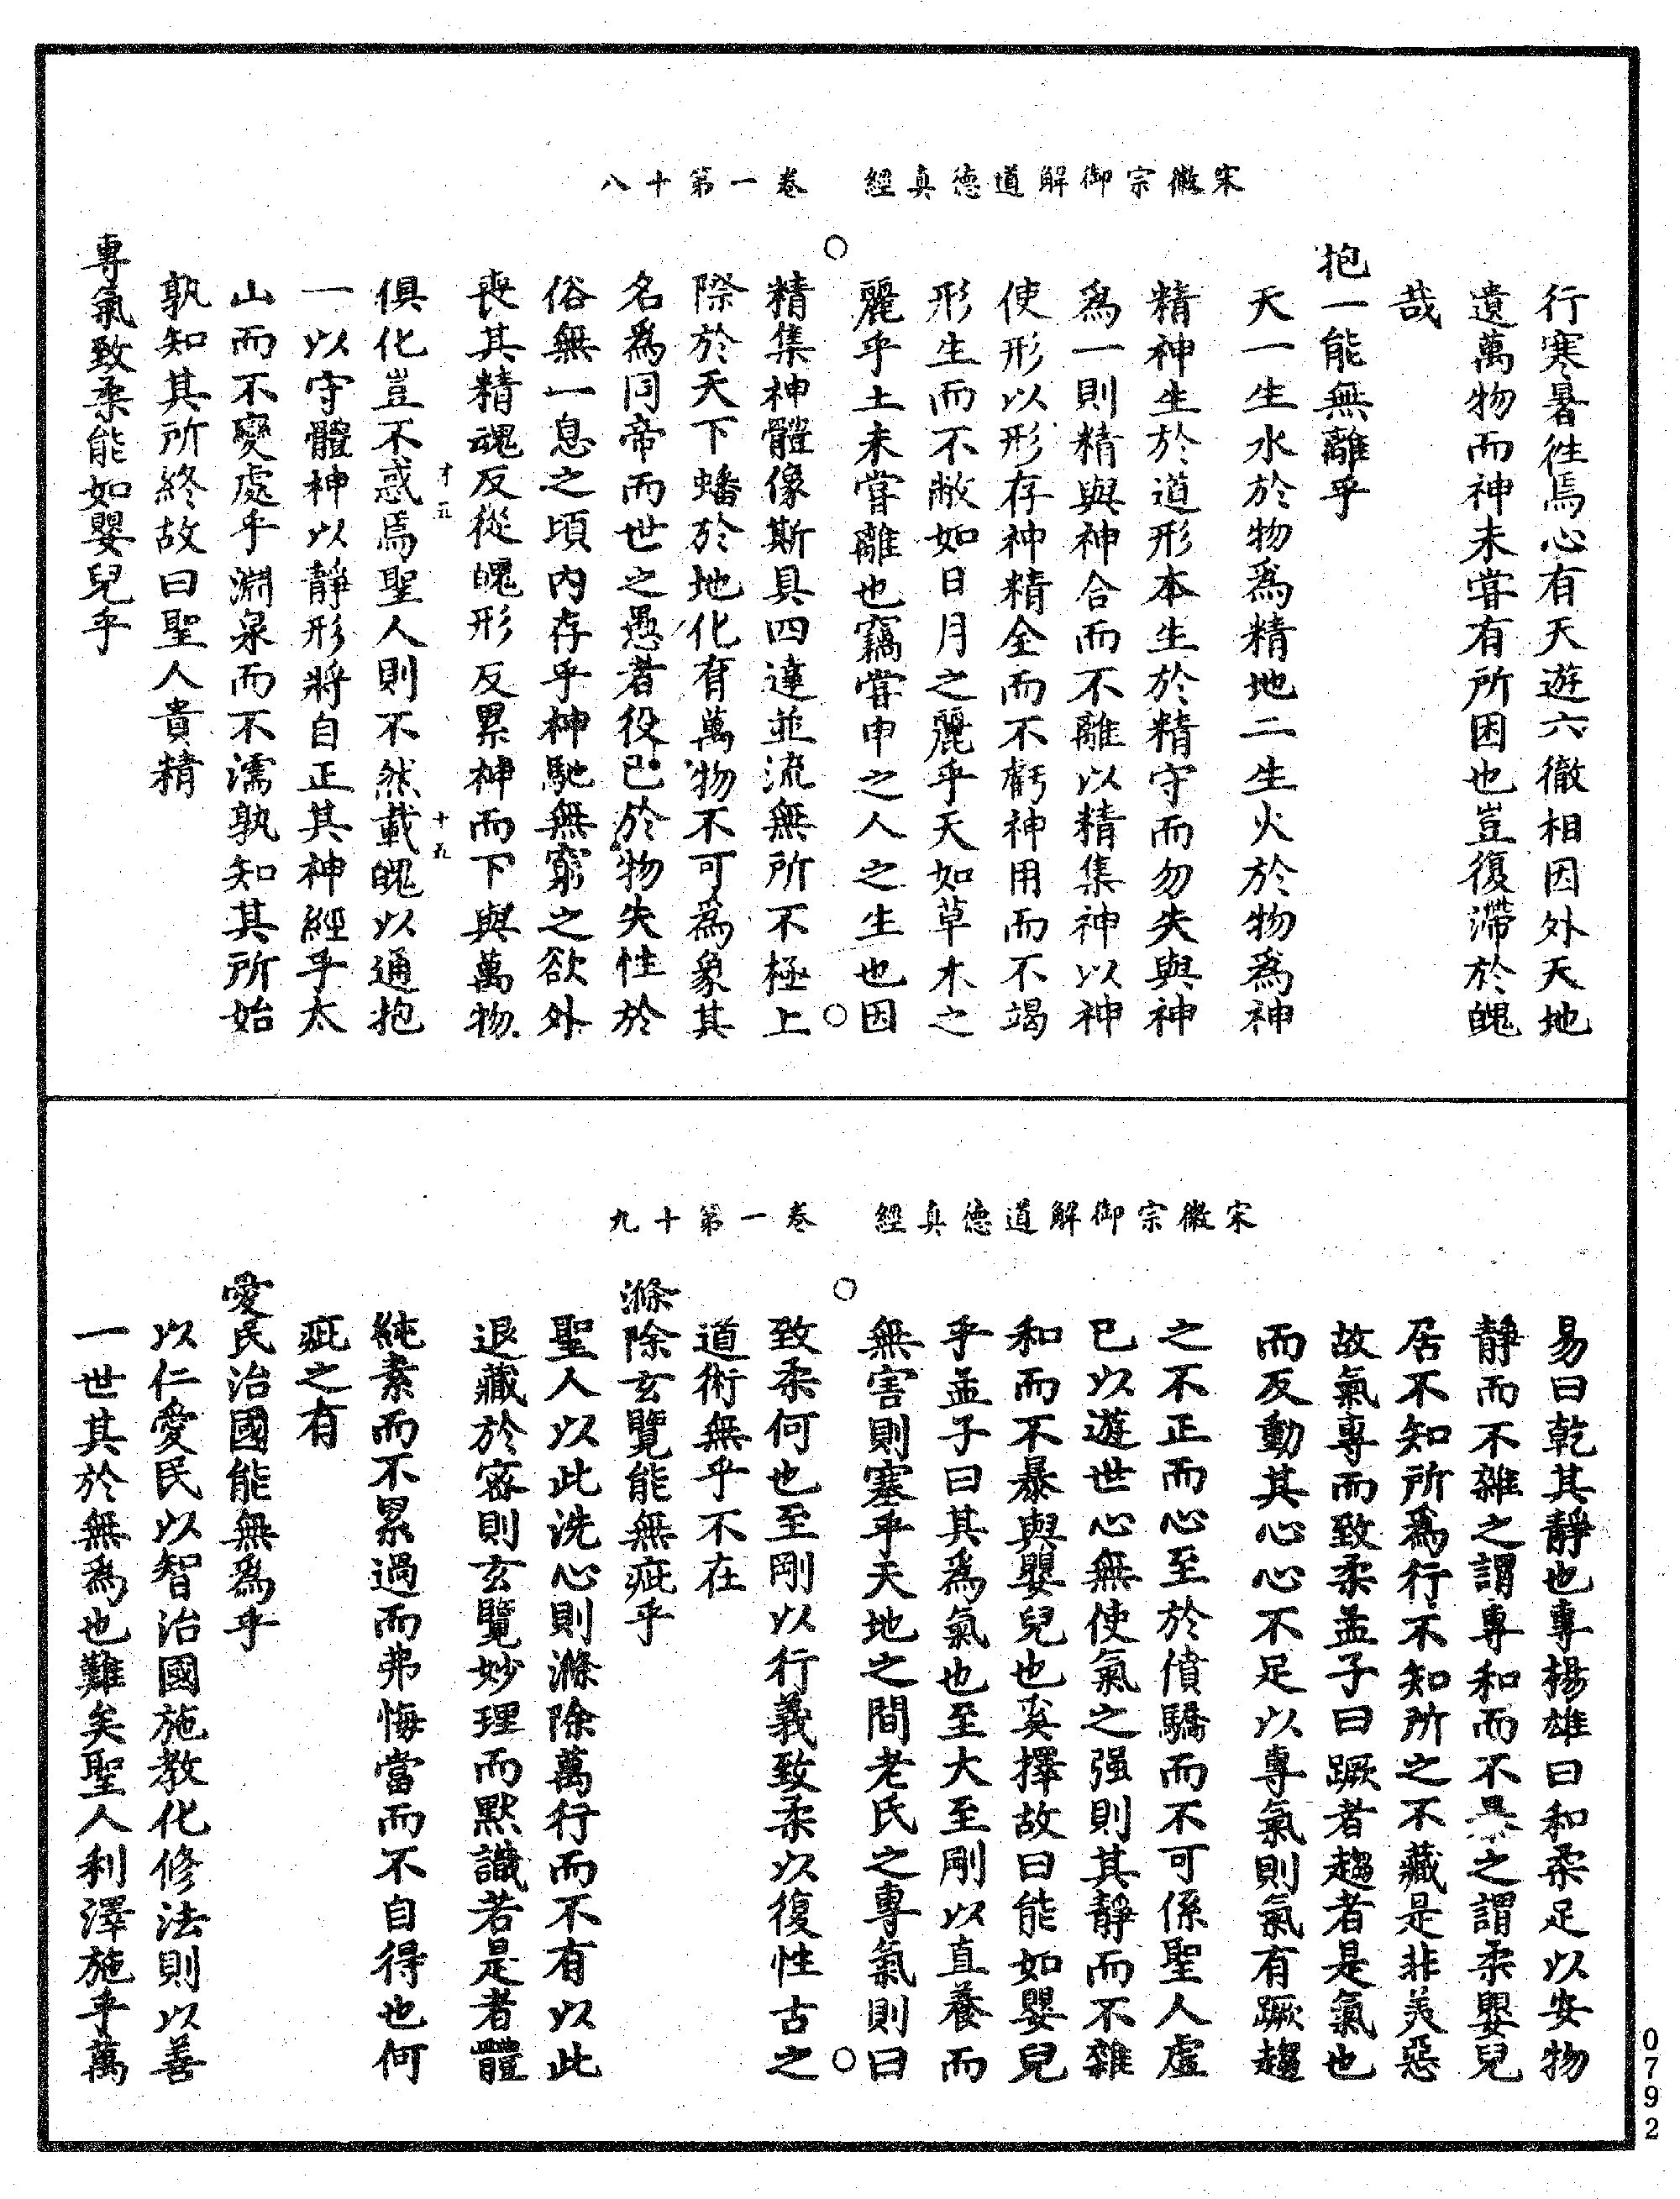 宋徽宗御解道德真經　卷一第十八
行寒暑徃焉心有天遊六徹相因外天地
遺萬物而神未甞有所困也豈復滯於魄
哉
抱一能無離乎
天一生水於物爲精地二生火於物爲神
精神生於道形本生於精守而勿失與神
爲一則精與神合而不離以精集神以神
使形以形存神精全而不虧神用而不竭
形生而不敝如日月之麗乎天如草木之
麗乎土未甞離也竊甞申之人之生也因
精集神體像斯具四達並流無所不極上
際於天下蟠於地化育萬物不可爲象其
名爲同帝而世之愚者役己於物失性於
俗無一息之頃内存乎神馳無窮之欲外
喪其精魂反從魄形反累神而下與萬物
俱化豈不惑焉聖人則不然載魄以通抱
才五
十九
一以守體神以靜形將自正其神經乎太
山而不變處乎淵泉而不濡孰知其所始
孰知其所終故曰聖人貴精
專氣致柔能如嬰兒乎
宋徽宗御解道德真經　卷一第十九
易曰乾其靜也專楊雄曰和柔足以安物
靜而不雜之謂專和而不暴之謂柔嬰兒
居不知所爲行不知所之不藏是非美惡
故氣專而致柔孟子曰蹶者趨者是氣也
而反動其心心不足以專氣則氣有蹶趨
之不正而心至於僨驕而不可係聖人虛
己以遊世心無使氣之强則其靜而不雜
和而不暴與嬰兒也奚擇故曰能如嬰兒
乎孟子曰其爲氣也至大至剛以直養而
無害則塞乎天地之間老氏之專氣則曰
致柔何也至剛以行義致柔以復性古之
道術無乎不在
滌除玄覽能無疵乎
聖人以此洗心則滌除萬行而不有以此
退藏於密則玄覽妙理而默識若是者體
純素而不累過而弗悔當而不自得也何
疵之有
愛民治國能無爲乎
以仁愛民以智治國施教化修法則以善
一世其於無爲也難矣聖人利澤施乎萬
0792